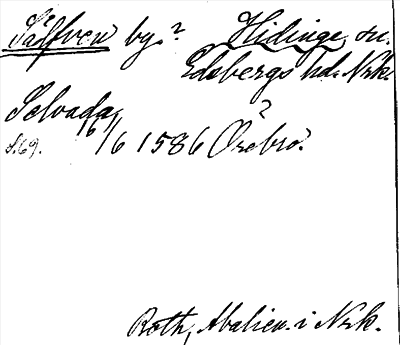 Sälfven by? Hidinge sn.
Edsbergs hd. Nrk.
Selvada
?
16/6 1586 Örebro.
s. 69.
Roth, Abalien. i Nrk.